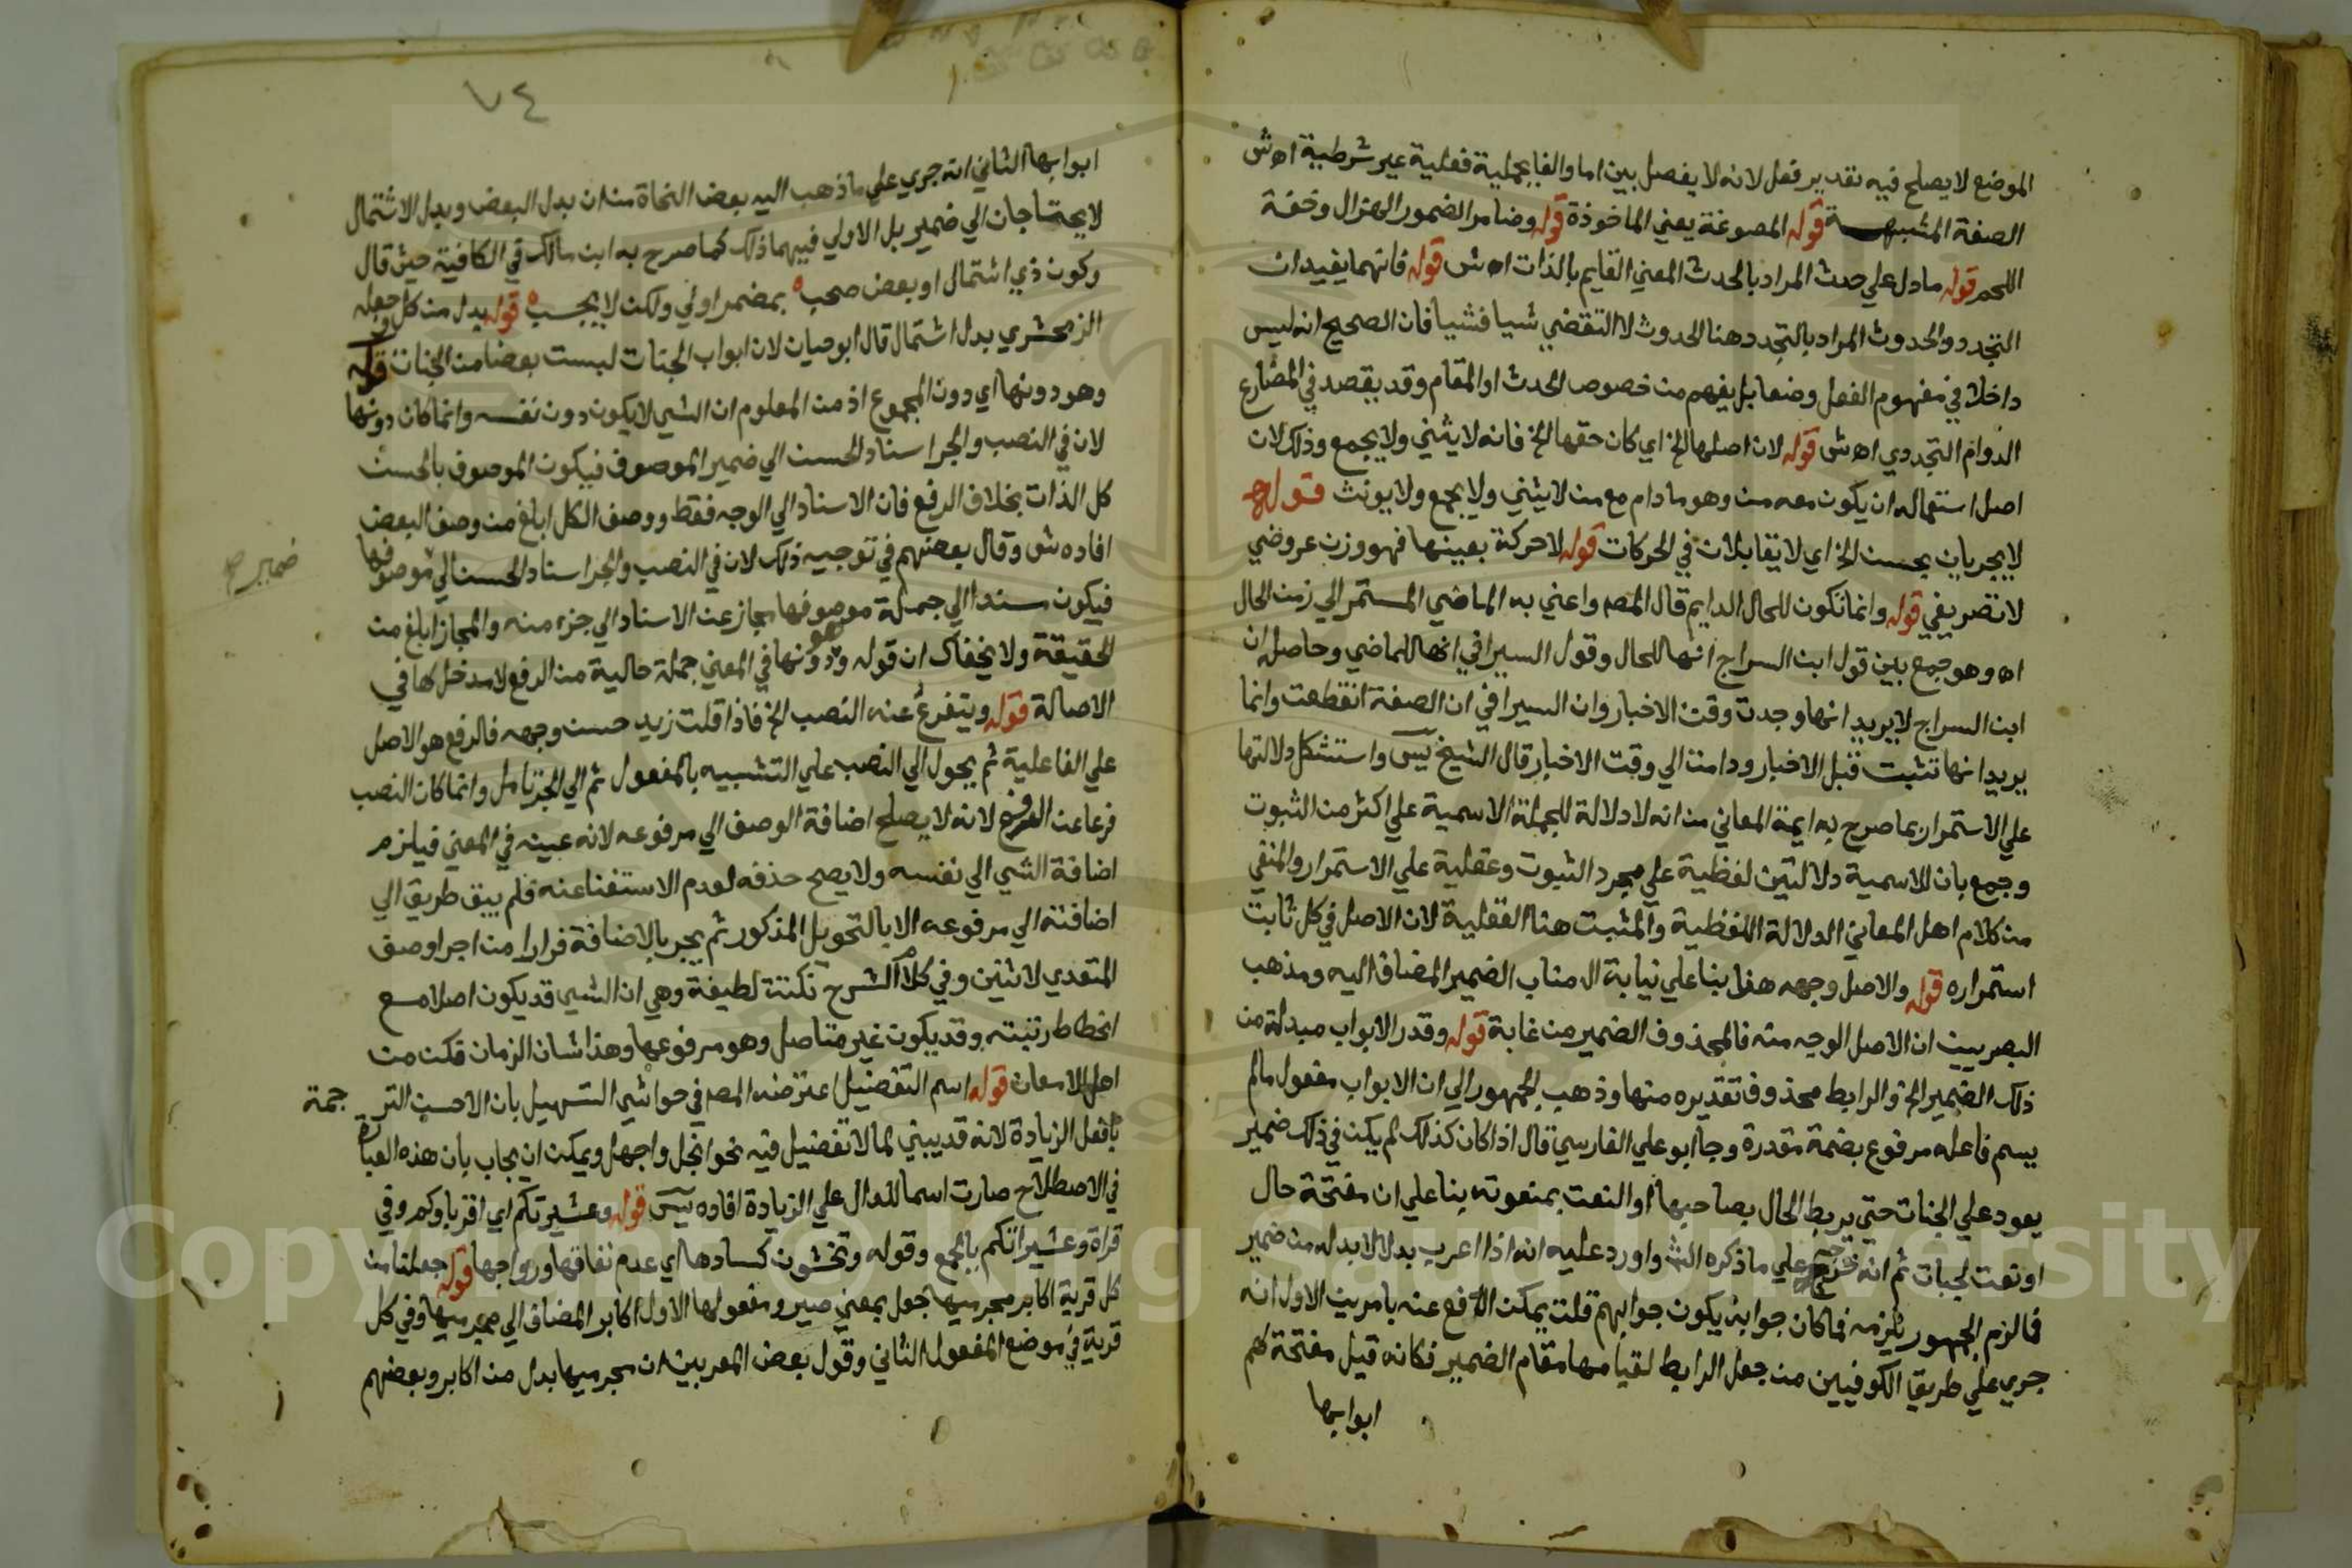 الموضع لا يصلح فيه تقدير فعل لانه لا يفصل بين اما والفا بجملية فعلية غير شرطية اه ش
الصفة المشبهة قوله المصوغة يعني الماخوذة قوله وضامر الضمور الهزال وخفة
اللحم قوله ما دل علي حدث المراد بالحدث المعني القايم بالذات اه ش قوله فانهما يفيدان
التجدد والحدوث المراد بالتجدد هنا الحدوث لا التقضي شيا فشيا فان الصحيح انه ليس
داخلا في مفهوم الفعل وضعا بل يفهم من خصوص الحدث او المقام وقد يقصد في المضارع
الدوام التجددي اه ش قوله لان اصلها الخ اي كان حقها الخ فانه لا يثني ولا يجمع وذلك لان
اصل استعماله ان يكون معه من وهو ما دام مع من لا يثني ولا يجمع ولا يونث قوله
لا يجريان بحسن الخ اي لا يتقابلان في الحركات قوله لا حركة بعينها فهو وزن عروضي
لا تصريفي قوله وانما تكون للحال الدايم قال المص واعني به الماضي المستمر الي زمن الحال
اه وهو جمع بين قول ابن السراج انها للحال وقول السيرافي انها للماضي وحاصله ان
ابن السراج لا يريد انها وجدت وقت الاخبار وان السيرافي ان الصفة انقطعت وانما
يريد انها تثبت قبل الاخبار ودامت الي وقت الاخبار قال الشيخ يس واستشكل دلالتها
علي الاستمرار بما صرح به ايمة المعاني من انه لا دلالة للجملة الاسمية علي اكثر من الثبوت
وجمع بان للاسمية دلالتين لفظية علي مجرد الثبوت وعقلية علي الاستمرار والمنفي
من كلام اهل المعاني الدلالة اللفظية والمثبت هنا العقلية لان الاصل في كل ثابت
استمراره قوله والاصل وجهه هذا بنا علي نيابة ال مناب الضمير المضاف اليه ومذهب
البصريين ان الاصل الوجه منه فالمحذوف الضمير من غابة قوله وقدر الابواب مبدلة من
ذلك الضمير الخ والرابط محذوف تقديره منها وذهب الجمهور الي ان الابواب مفعول مالم
يسم فاعله مرفوع بضمة مقدرة وجا ابو علي الفارسي قال اذا كان كذلك لم يكن في ذلك ضمير
يعود علي الجنات حتي يربط الحال بصاحبها او النعت بمنعوته بنا علي ان مفتحة حال
او نعت لجنات ثم انه خرج علي ما ذكره الش واورد عليه انه اذا اعرب بدلا لا بد له من ضمير
فما لزم الجمهور يلزمه فما كان جوابه يكون جوابهم قلت يمكن الدفع عنه بامرين الاول انه
جري علي طريقا الكوفيين من جعل الرابط لقيامها مقام الضمير فكانه قيل مفتحة لهم
ابوابها
٧٤
ابوابها الثاني انه جري علي ما ذهب اليه بعض النحاة من ان بدل البعض وبدل الاشتمال
لا يحتاجان الي ضمير بل الاولي فيهما ذلك كما صرح به ابن مالك في الكافية حيث قال
وكون ذي اشتمال او بعض صحب ه بمضمر اولي ولكن لا يجب ه قوله بدل من كل وجعله
الزمخشري بدل اشتمال قال ابو حيان لان ابواب الجنات ليست بعضا من الجنات قوله
وهو دونها اي دون المجموع اذ من المعلوم ان الشي لا يكون دون نفسه وانما كان دونها
لان في النصب والجر اسناد الحسن الي ضمير الموصوف فيكون الموصوف بالحسن
كل الذات بخلاف الرفع فان الاسناد الي الوجه فقط ووصف الكل ابلغ من وصف البعض
افاده ش وقال بعضهم في توجيه ذلك لان في النصب والجر اسناد الحسن الي موصوفها
ضمير صح
فيكون مسندا الي جملة موصوفها مجاز عن الاسناد الي جزء منه والمجاز ابلغ من
الحقيقة ولا يخفاك ان قوله وهو دونها في المعني جملة حالية من الرفع لا مدخل لها في
الاصالة قوله ويتفرع عنه النصب الخ فاذا قلت زيد حسن وجهه فالرفع هو الاصل
علي الفاعلية ثم يحول الي النصب علي التشبيه بالمفعول ثم الي الجر تامل وانما كان النصب
فرعا عن الرفع لانه لا يصلح اضافة الوصف الي مرفوعه لانه عينه في المعني فيلزم
اضافة الشي الي نفسه ولا يصح حذفه لعدم الاستغنا عنه فلم يبق طريق الي
اضافته الي مرفوعه الا بالتحويل المذكور ثم يجر بالاضافة فرارا من اجرا وصف
المتعدي لاثنين وفي كلام الشرح نكتة لطيفة وهي ان الشي قد يكون اصلا مع
انحطاط رتبته وقد يكون غير متاصل وهو مرفوعها وهذا شان الزمان فكن من
اهل الامعان قوله اسم التفضيل اعترضه المص في حواشي التسهيل بان الاحسن الترجمة
بافعل الزيادة لانه قد يبني لما لا تفضيل فيه نحو ابخل واجهل ويمكن ان يجاب بان هذه العبارة
في الاصطلاح صارت اسما للدال علي الزيادة افاده يس قوله وعشيرتكم اي اقرباوكم وفي
قراة وعشيراتكم بالجمع وقوله وتخشون كسادها اي عدم نفاقها ورواجها قوله جعلنا من
كل قرية اكابر مجرميها جعل بمعني صير ومفعولها الاول اكابر المضاف الي مجرميها وفي كل
قرية في موضع المفعول الثاني وقول بعض المعربين ان مجرميها بدل من اكابر وبعضهم
Copyright © King Saud University